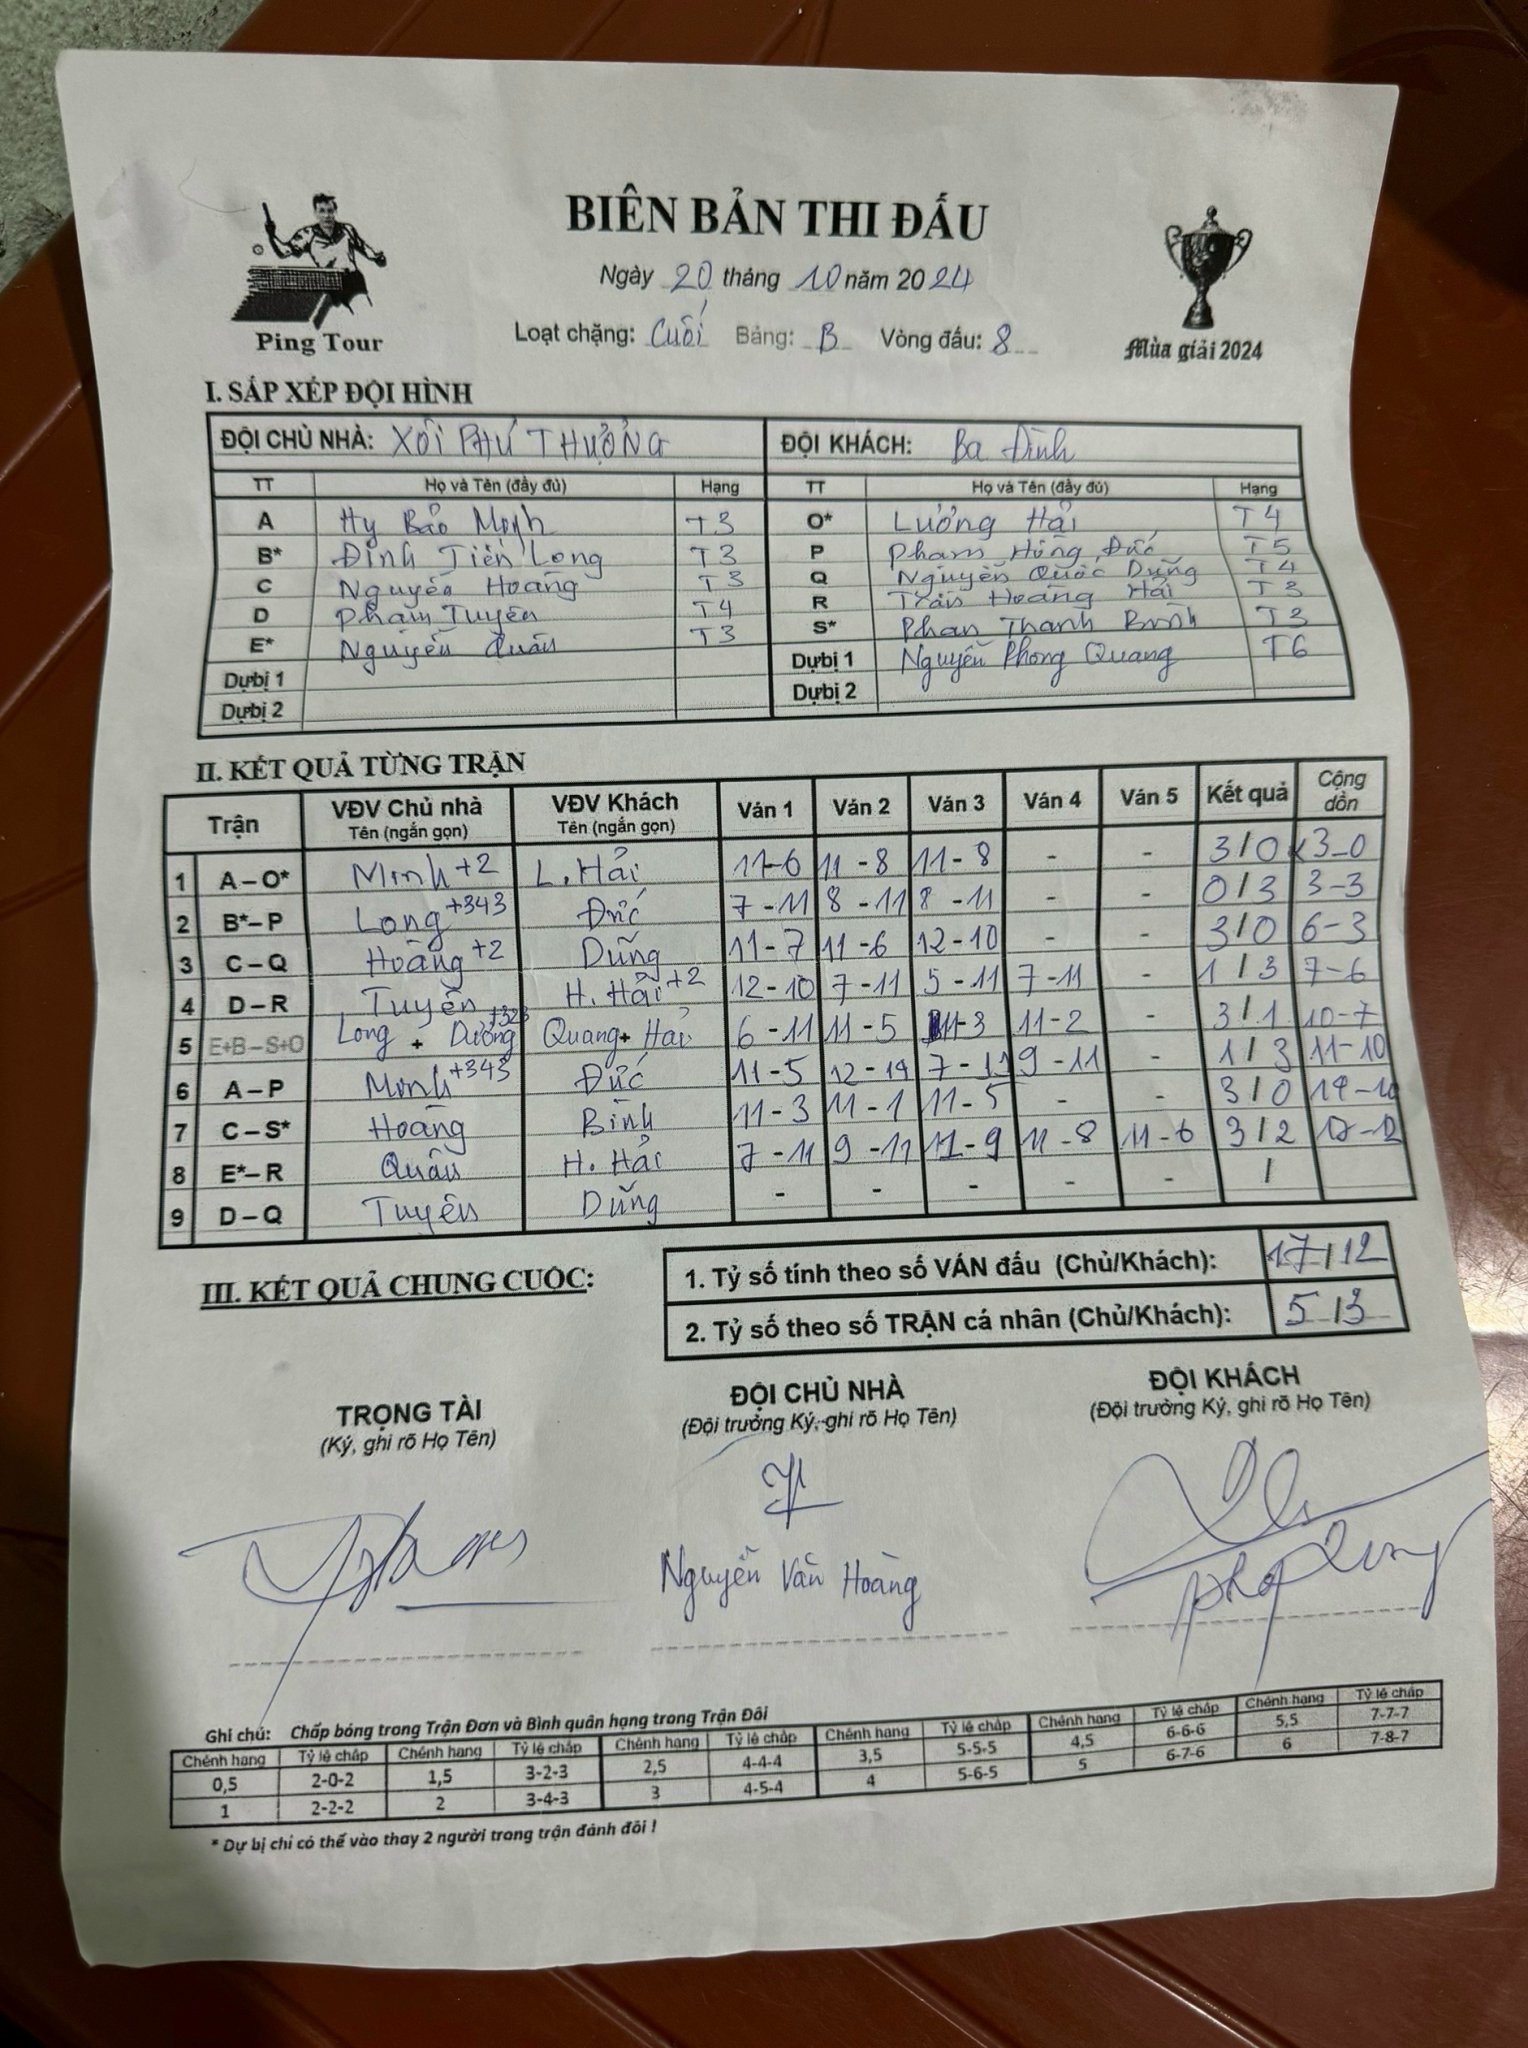 BIÊN BẢN THI ĐẤU
Ngày 20 tháng 10 năm 2024
Ping Tour
Loạt chặng: Cuối Bảng: B Vòng đấu: 8
Mùa giải 2024
I. SẮP XẾP ĐỘI HÌNH
ĐỘI CHỦ NHÀ: XÔI PHÚ THƯỢNG ĐỘI KHÁCH: Ba Đình
TT Họ và Tên (đầy đủ) Hạng TT Họ và Tên (đầy đủ) Hạng
A Hy Bảo Minh T3 O* Lương Hải T4
B* Đinh Tiến Long T3 P Phạm Hồng Đức T5
C Nguyễn Hoàng T3 Q Nguyễn Quốc Dũng T4
D Phạm Tuyên T4 R Trần Hoàng Hải T3
E* Nguyễn Quân T3 S* Phan Thanh Bình T3
Dự bị 1 Dự bị 1 Nguyễn Phong Quang T6
Dự bị 2 Dự bị 2
II. KẾT QUẢ TỪNG TRẬN
Trận VĐV Chủ nhà Tên (ngắn gọn) VĐV Khách Tên (ngắn gọn) Ván 1 Ván 2 Ván 3 Ván 4 Ván 5 Kết quả Cộng dồn
1 A – O* Minh +2 L. Hải 11-6 11-8 11-8 - - 3/0 3-0
2 B* – P Long +343 Đức 7-11 8-11 8-11 - - 0/3 3-3
3 C – Q Hoàng +2 Dũng 11-7 11-6 12-10 - - 3/0 6-3
4 D – R Tuyên H. Hải +2 12-10 7-11 5-11 7-11 - 1/3 7-6
5 E+B – S+O Long + Dương +323 Quang + Hải 6-11 11-5 11-3 11-2 - 3/1 10-7
6 A – P Minh +343 Đức 11-5 12-14 7-11 9-11 - 1/3 11-10
7 C – S* Hoàng Bình 11-3 11-1 11-5 - - 3/0 14-10
8 E* – R Quân H. Hải 7-11 9-11 11-9 11-8 11-6 3/2 17-12
9 D – Q Tuyên Dũng - - - - - /
III. KẾT QUẢ CHUNG CUỘC:
1. Tỷ số tính theo số VÁN đấu (Chủ/Khách): 17/12
2. Tỷ số theo số TRẬN cá nhân (Chủ/Khách): 5/3
TRỌNG TÀI ĐỘI CHỦ NHÀ ĐỘI KHÁCH
(Ký, ghi rõ Họ Tên) (Đội trưởng Ký, ghi rõ Họ Tên) (Đội trưởng Ký, ghi rõ Họ Tên)
Nguyễn Văn Hoàng
Ghi chú: Chấp bóng trong Trận Đơn và Bình quân hạng trong Trận Đôi
Chênh hạng Tỷ lệ chấp Chênh hạng Tỷ lệ chấp Chênh hạng Tỷ lệ chấp Chênh hạng Tỷ lệ chấp Chênh hạng Tỷ lệ chấp Chênh hạng Tỷ lệ chấp
0,5 2-0-2 1,5 3-2-3 2,5 4-4-4 3,5 5-5-5 4,5 6-6-6 5,5 7-7-7
1 2-2-2 2 3-4-3 3 4-5-4 4 5-6-5 5 6-7-6 6 7-8-7
* Dự bị chỉ có thể vào thay 2 người trong trận đánh đôi !